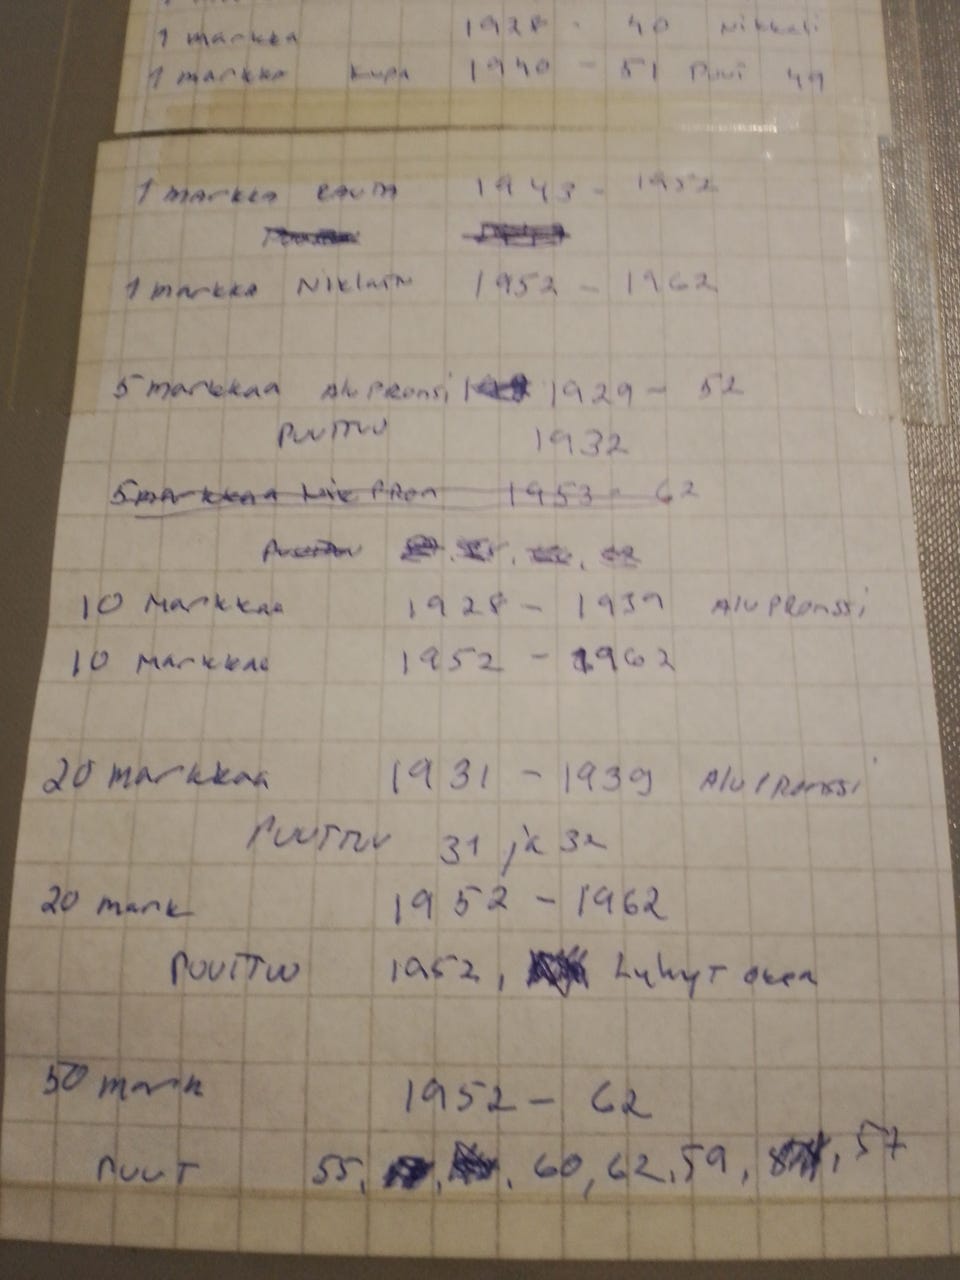 1 markka 1928 - 40 Nikkeli
1 markka Kupa 1940 - 51 Puut 49
1 markka Rauta 1943 - 1952
1 markka Niklatn 1952 - 1962
5 markkaa Alupronsi 1929 - 52
Puuttuu 1932
5 markkaa Nik Pron 1953 - 62
Puuttuu
10 Markkaa 1928 - 1939 Alupronssi
10 Markkaa 1952 - 1962
20 markkaa 1931 - 1939 Alupronssi
Puuttuu 31 ja 32
20 mark 1952 - 1962
Puuttuu 1952, Lyhyt oksa
50 mark 1952 - 62
Puut 55, 60, 62, 59, 57